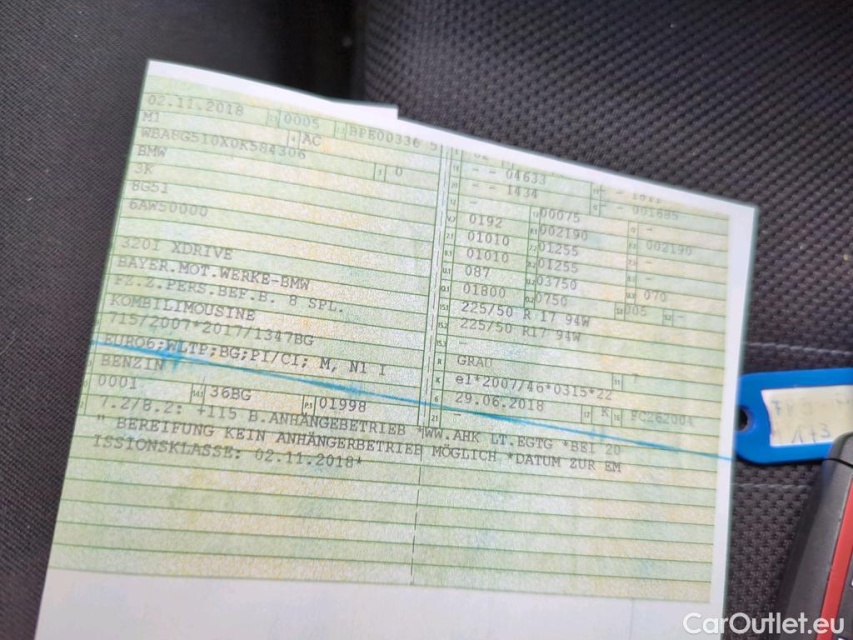 02.11.2018 0005 BPE00336 5
M1 AC
WBA8G510X0K584306
BMW 0
3K
8G51
6AW50000
320I XDRIVE
BAYER.MOT.WERKE-BMW
FZ.Z.PERS.BEF.B. 8 SPL.
KOMBILIMOUSINE
715/2007*2017/1347BG
EURO6;WLTP;BG;PI/CI; M, N1 I
BENZIN
0001 36BG 01998
- - 04633
- - 1434 - 001685
00075
0192 002190 002190
01010 01255 -
01010 01255
087 03750 070
01800 0750 005 -
225/50 R 17 94W
225/50 R17 94W
GRAU
e1*2007/46*0315*22
29.06.2018 K FC262004
-
7.2/8.2: +115 B.ANHÄNGEBETRIEB *WW.AHK LT.EGTG *BEI 20
" BEREIFUNG KEIN ANHÄNGERBETRIEB MÖGLICH *DATUM ZUR EM
ISSIONSKLASSE: 02.11.2018*
CarOutlet.eu